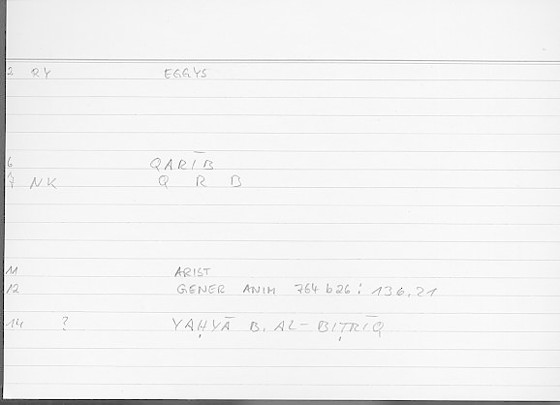 2 RY EGGYS
6 QARĪB
7 NK Q R B
11 ARIST
12 GENER ANIM 764 b26 : 136.21
14 ? YAḤYĀ B. AL-BIṬRĪQ